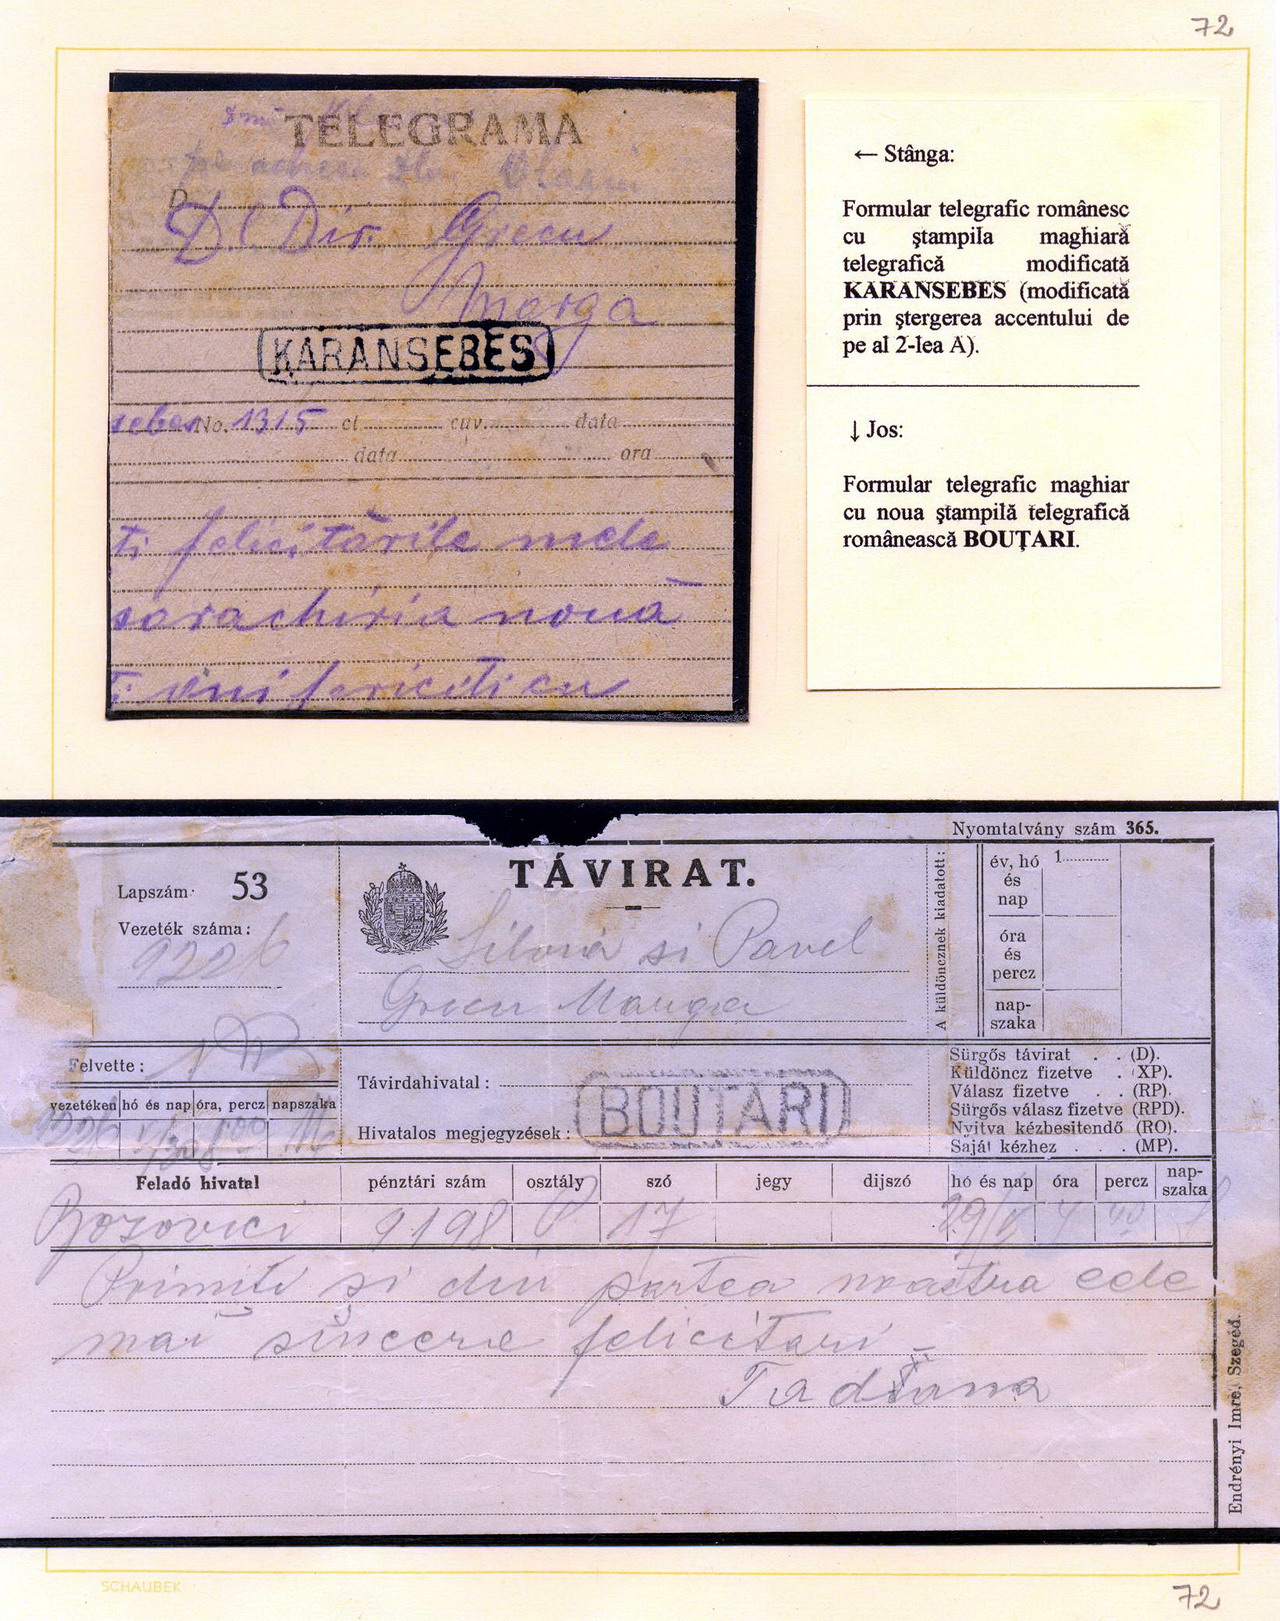 72
TELEGRAMA
D.l Dir. Grecu
Marga
KARANSEBES
sebes No. 1315 ct. cuv. data
data ora
ti felicitările mele
noua
ti fericiti cu
← Stânga:
Formular telegrafic românesc
cu ştampila maghiară
telegrafică modificată
KARANSEBES (modificată
prin ştergerea accentului de
pe al 2-lea A).
↓ Jos:
Formular telegrafic maghiar
cu noua ştampilă telegrafică
românească BOUŢARI.
Nyomtatvány szám 365.
Lapszám: 53
TÁVIRAT.
Vezeték száma:
1226
si Pavel
Grecu Marga
A küldöncznek kiadatott:
év, hó és nap 1
óra és percz
napszaka
Felvette:
vezetéken hó és nap óra, percz napszaka
Távirdahivatal:
BOUTARI
Hivatalos megjegyzések:
Sürgős távirat . . (D).
Küldöncz fizetve . (XP).
Válasz fizetve . . (RP).
Sürgős válasz fizetve (RPD).
Nyitva kézbesitendő (RO).
Saját kézhez . . . (MP).
Feladó hivatal pénztári szám osztály szó jegy díjszó hó és nap óra percz napszaka
Bozovici 9198 17
Primiti si din partea noastra cele
mai sincere felicitari
Endrényi Imre, Szeged.
SCHAUBEK
72